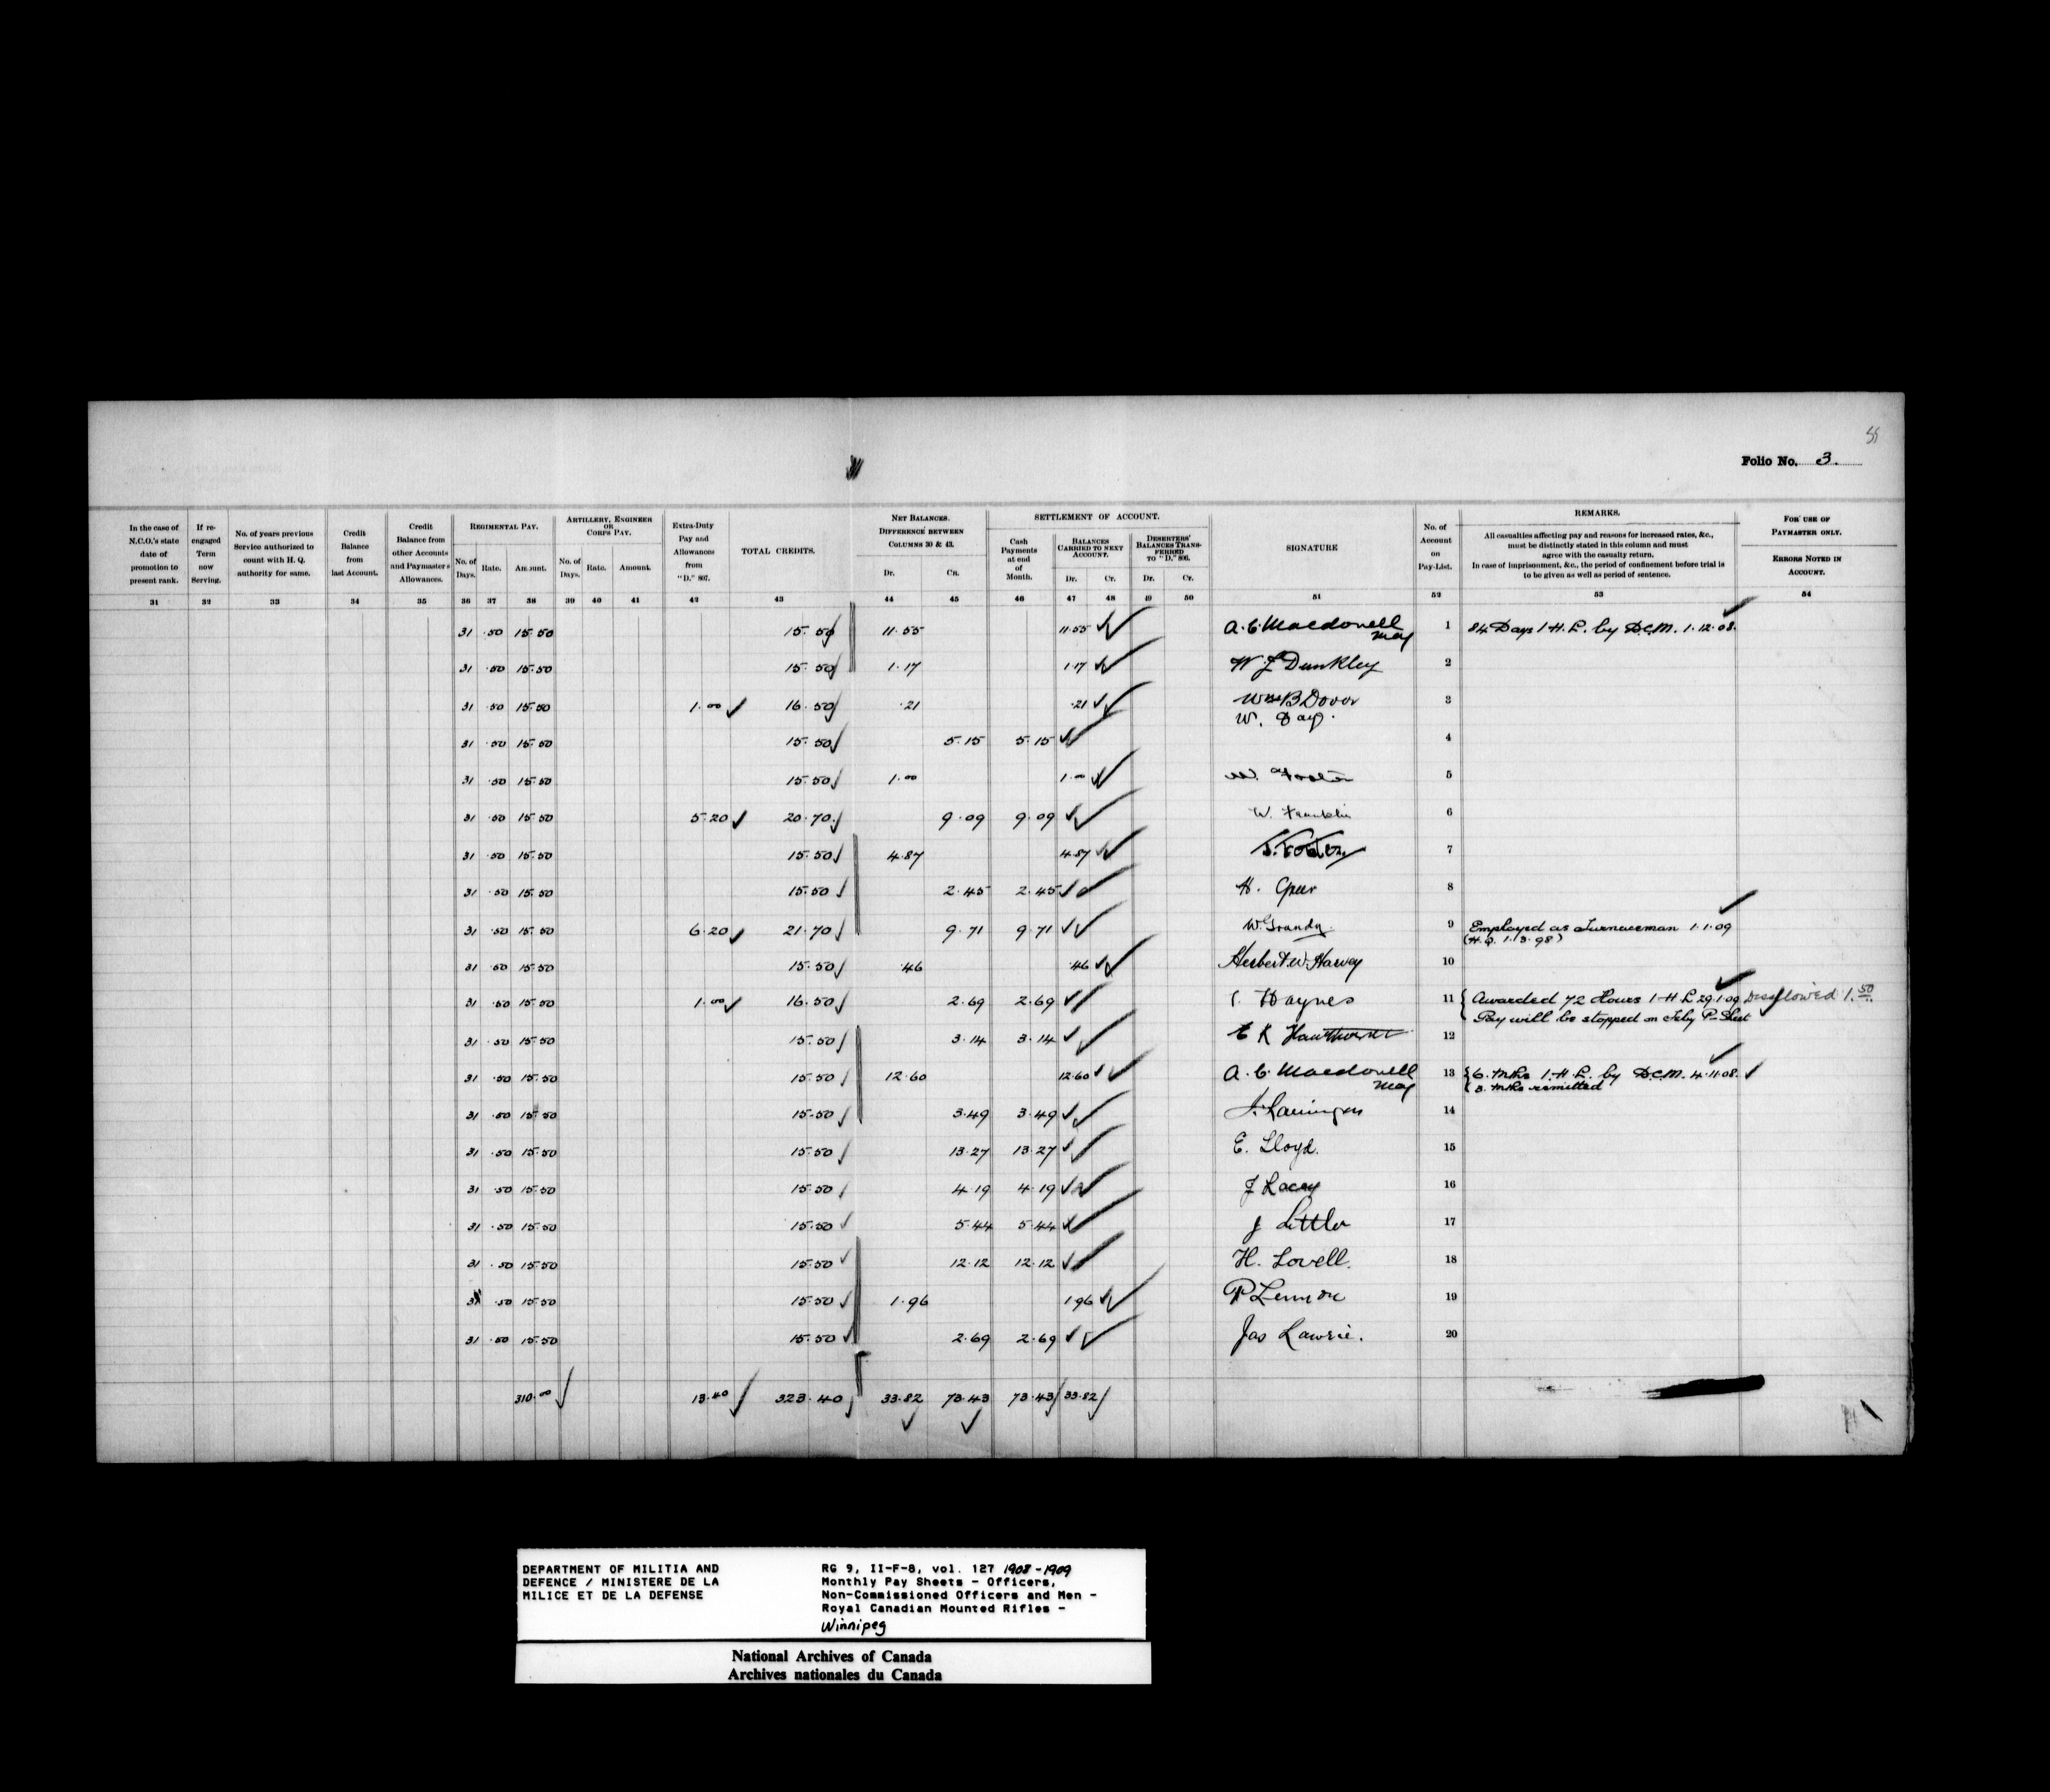 55
Folio No. 3.
In the case of N.C.O.'s state date of promotion to present rank.
If re-engaged Term now Serving.
No. of years previous Service authorized to count with H. Q. authority for same.
Credit Balance from last Account.
Credit Balance from other Accounts and Paymasters Allowances.
REGIMENTAL PAY.
No. of Days. Rate. Amount.
ARTILLERY, ENGINEER OR CORPS PAY.
No. of Days. Rate. Amount.
Extra-Duty Pay and Allowances from "D." 807.
TOTAL CREDITS.
NET BALANCES. DIFFERENCE BETWEEN COLUMNS 30 & 43.
DR. CR.
SETTLEMENT OF ACCOUNT.
Cash Payments at end of Month.
BALANCES CARRIED TO NEXT ACCOUNT.
Dr. Cr.
DESERTERS' BALANCES TRANSFERRED TO "D." 806.
Dr. Cr.
SIGNATURE
No. of Account on Pay-List.
REMARKS.
All casualties affecting pay and reasons for increased rates, &c., must be distinctly stated in this column and must agree with the casualty return.
In case of imprisonment, &c., the period of confinement before trial is to be given as well as period of sentence.
FOR USE OF PAYMASTER ONLY.
ERRORS NOTED IN ACCOUNT.
31 32 33 34 35 36 37 38 39 40 41 42 43 44 45 46 47 48 49 50 51 52 53 54
31 .50 15.50 15.50 11.55 11.55 A. C. Macdonell Maj 1 84 Days I.H.L. by D.C.M. 1.12.08.
31 .50 15.50 15.50 1.17 1.17 W J Dunkley 2
31 .50 15.50 1.00 16.50 .21 .21 Wm B Dover 3
W. Day.
31 .50 15.50 15.50 5.15 5.15 4
31 .50 15.50 15.50 1.00 1.00 W. Foster 5
31 .50 15.50 5.20 20.70 9.09 9.09 W. Franklin 6
31 .50 15.50 15.50 4.87 4.87 S. Foster 7
31 .50 15.50 15.50 2.45 2.45 H. Greer 8
31 .50 15.50 6.20 21.70 9.71 9.71 W. Grandy 9 Employed as Furnaceman 1.1.09
(H.Q. 1.13.98)
31 .50 15.50 15.50 .46 .46 Herbert W. Harvey 10
31 .50 15.50 1.00 16.50 2.69 2.69 Haynes 11 Awarded 72 Hours I.H.L 29.1.09 Disallowed 1.50
Pay will be stopped on Feby P-Sheet
31 .50 15.50 15.50 3.14 3.14 E K Hawthorne 12
31 .50 15.50 15.50 12.60 12.60 A. C. Macdonell Maj 13 6. Mths I.H.L. by D.C.M. 4.11.08.
3. Mths remitted
31 .50 15.50 15.50 3.49 3.49 14
31 .50 15.50 15.50 13.27 13.27 E. Lloyd. 15
31 .50 15.50 15.50 4.19 4.19 J Lacey 16
31 .50 15.50 15.50 5.44 5.44 J Littler 17
31 .50 15.50 15.50 12.12 12.12 H. Lovell. 18
31 .50 15.50 15.50 1.96 1.96 P Lennon 19
31 .50 15.50 15.50 2.69 2.69 Jas Lawrie. 20
310.00 13.40 323.40 33.82 73.43 73.43 33.82
DEPARTMENT OF MILITIA AND
DEFENCE / MINISTERE DE LA
MILICE ET DE LA DEFENSE
RG 9, II-F-8, vol. 127 1908-1909
Monthly Pay Sheets - Officers,
Non-Commissioned Officers and Men -
Royal Canadian Mounted Rifles -
Winnipeg
National Archives of Canada
Archives nationales du Canada